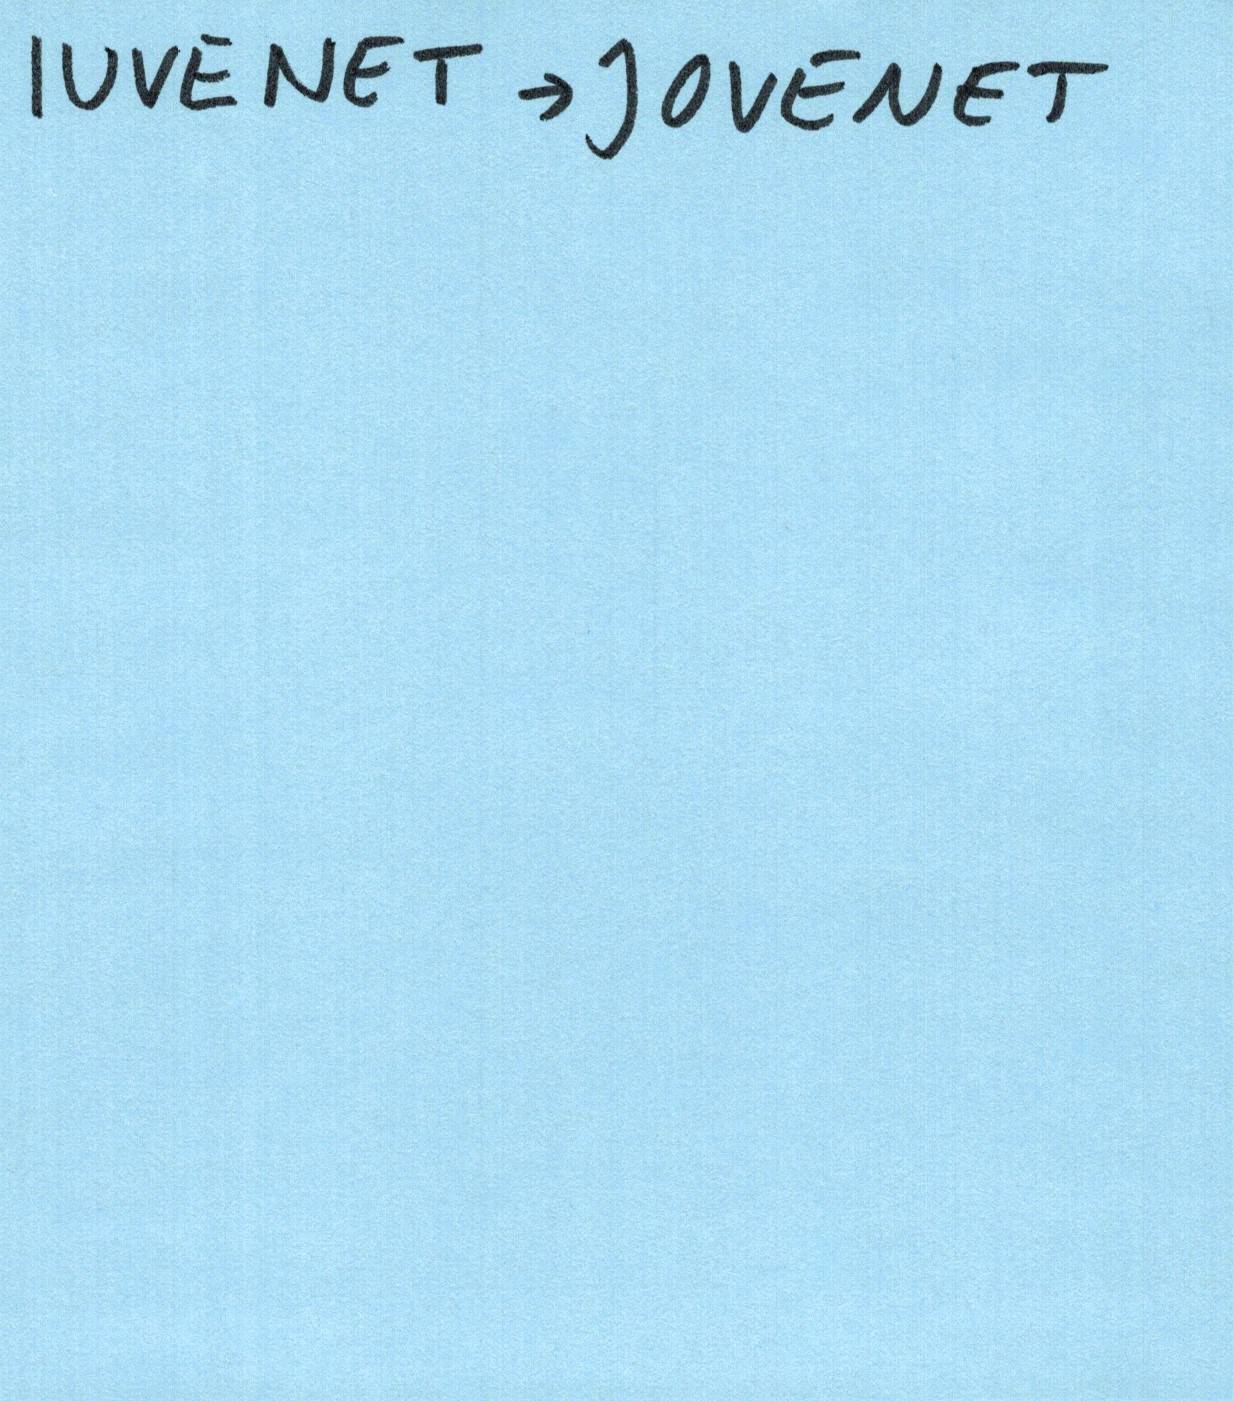 IUVENET → JOVENET